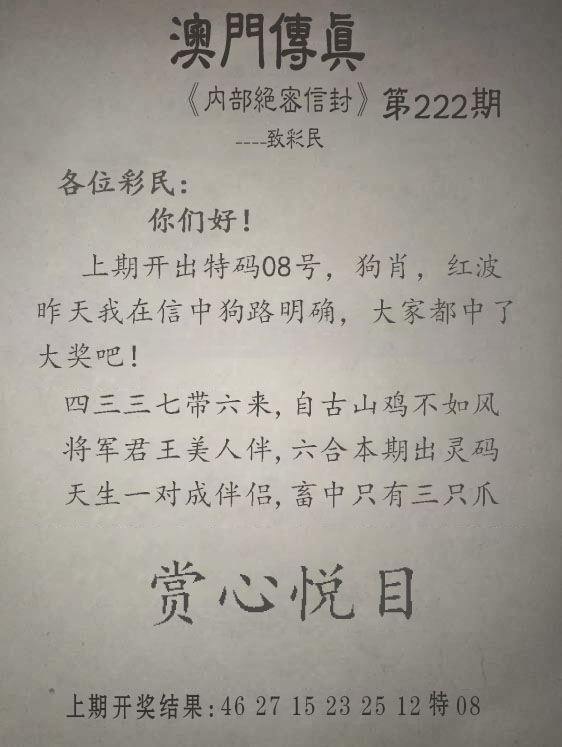 澳門傳眞
《内部絕密信封》第222期
----致彩民
各位彩民：
你们好！
上期开出特码08号，狗肖，红波
昨天我在信中狗路明确，大家都中了
大奖吧！
四三三七带六来,自古山鸡不如风
将军君王美人伴,六合本期出灵码
天生一对成伴侣,畜中只有三只爪
赏心悦目
上期开奖结果:46 27 15 23 25 12 特 08